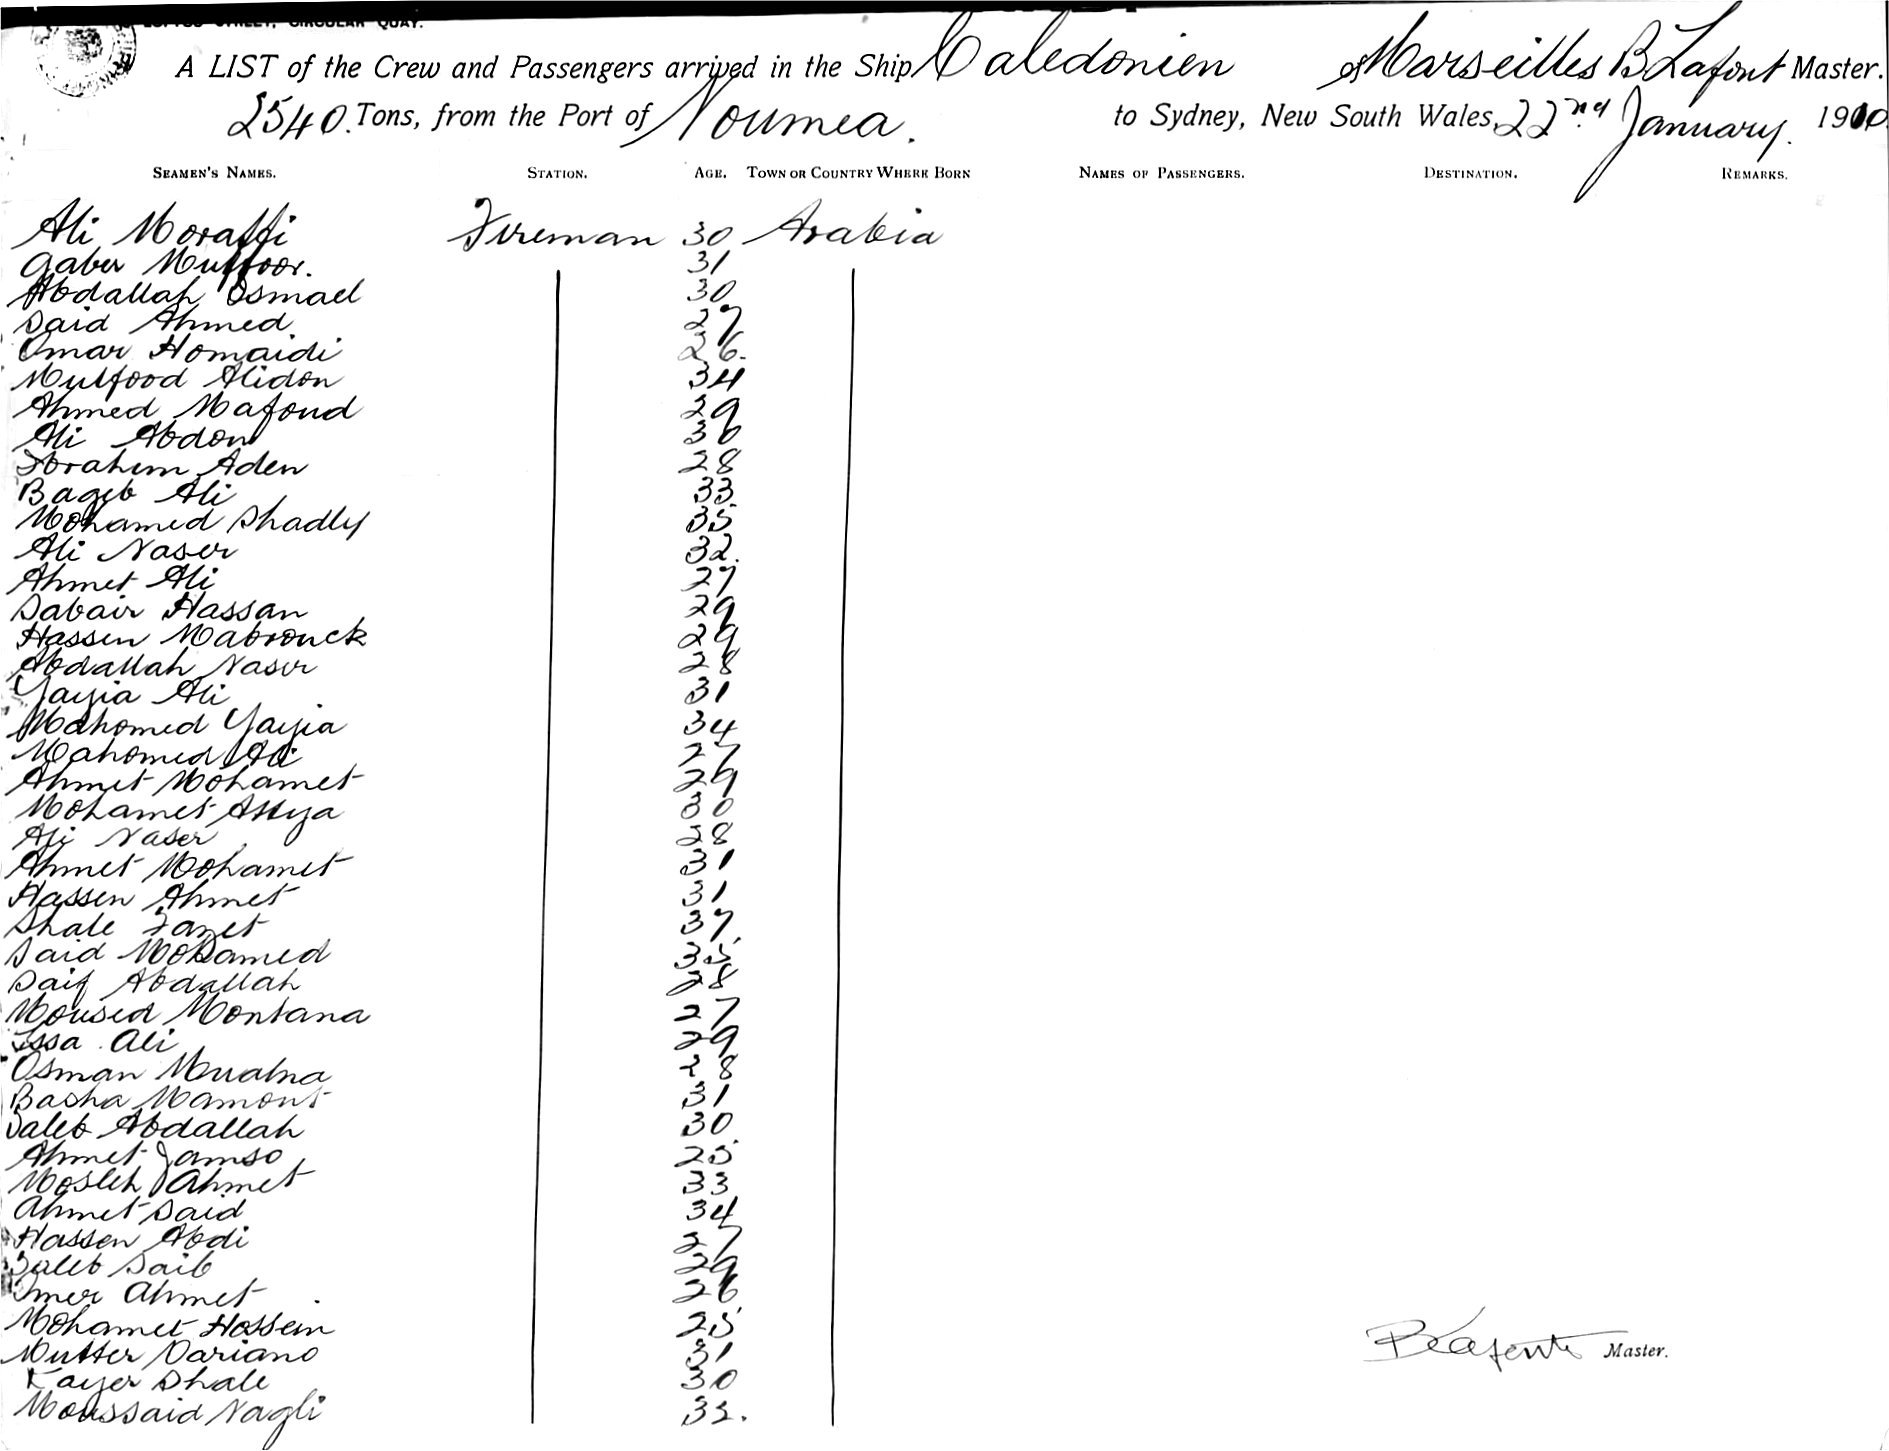 LOFTUS STREET, CIRCULAR QUAY.
A LIST of the Crew and Passengers arrived in the Ship Caledonien of Marseilles B Lafont Master.
2540 Tons, from the Port of Noumea. to Sydney, New South Wales, 22nd January. 1910
SEAMEN'S NAMES. STATION. AGE. TOWN OR COUNTRY WHERE BORN NAMES OF PASSENGERS. DESTINATION. REMARKS.
Ali Moraffi Fireman 30 Arabia
Gaber Muffoor. 31
Abdallah Osmael 30
Said Ahmed 27
Omar Homaidi 26.
Mulfood Alidon 34
Ahmed Mafoud 29
Ali Abdon 36
Ibrahim Aden 28
Bageb Ali 33
Mohamed Shadly 35
Ali Naser 32.
Ahmet Ali 27
Sabair Hassan 29
Hassen Mabrouck 29
Abdallah Naser 28
Yayia Ali 31
Mahomed Yayia 34
Mahomed Ali 27
Ahmet Mohamet 29
Mohamet Assya 30
Ali Naser 28
Ahmet Mohamet 31
Hassen Ahmet 31
Shale Fazet 37
Said Mohamed 35
Saif Abdallah 28
Moused Montana 27
Issa Ali 29
Osman Mualna 28
Basha Mamout 31
Saleb Abdallah 30
Ahmet Jamso 25
Mosleh Ahmet 33
Ahmet Said 34
Hassen Abdi 27
Saleb Saib 29
Omer Ahmet 26
Mohamet Hossein 25
Mutter Dariano 31
Kayer Shale 30
Moussaid Nagli 32.
B Lafont Master.